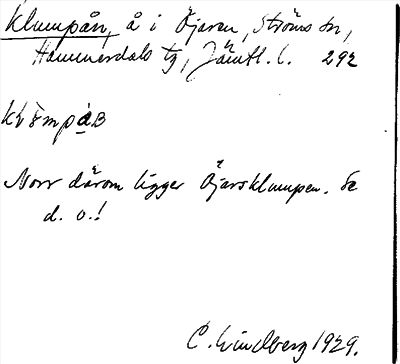 Klumpån, å i Öjaren, Ströms sn,
Hammerdals tg, Jämtl. l. 292
Norr därom ligger Öjarsklumpen. Se
d. o.!
C. Lindberg 1929.